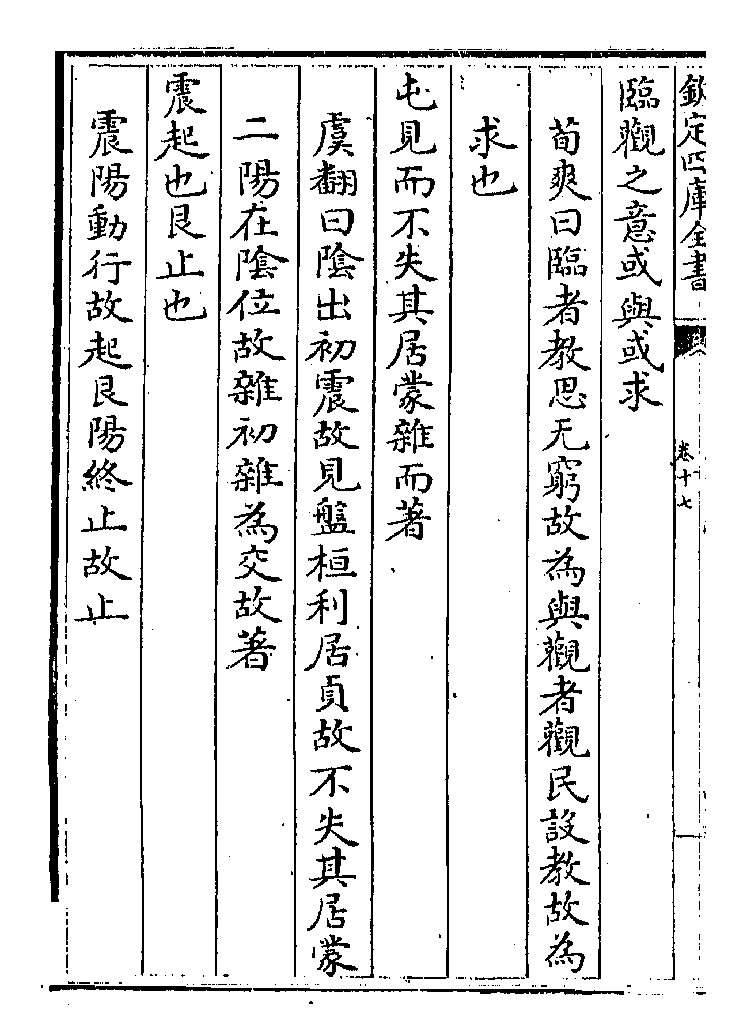 欽定四庫全書
卷十七
臨觀之意或與或求
荀爽曰臨者教思无窮故為與觀者觀民設教故為
求也
屯見而不失其居蒙雜而著
虞翻曰陰出初震故見盤桓利居貞故不失其居蒙
二陽在陰位故雜初雜為交故著
震起也艮止也
震陽動行故起艮陽終止故止